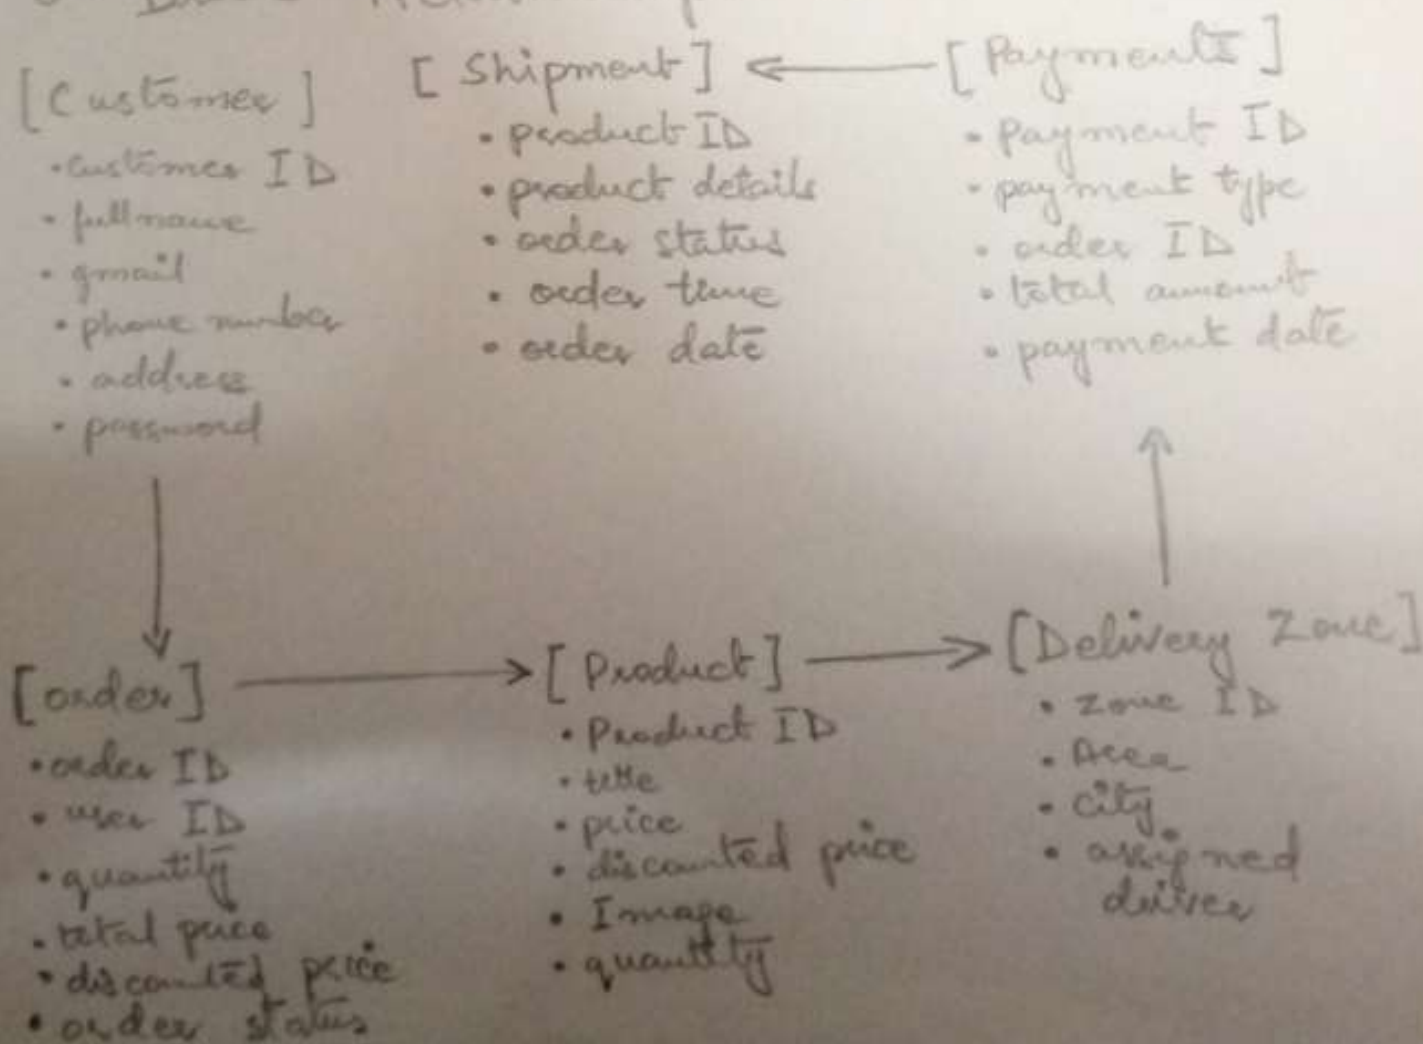 [Customer]
• customer ID
• fullname
• gmail
• phone number
• address
• password
[Shipment]
• product ID
• product details
• order status
• order time
• order date
[Payments]
• Payment ID
• payment type
• order ID
• total amount
• payment date
[order]
• order ID
• user ID
• quantity
• total price
• discounted price
• order status
[Product]
• Product ID
• title
• price
• discounted price
• Image
• quantity
[Delivery Zone]
• zone ID
• Area
• city
• assigned
driver